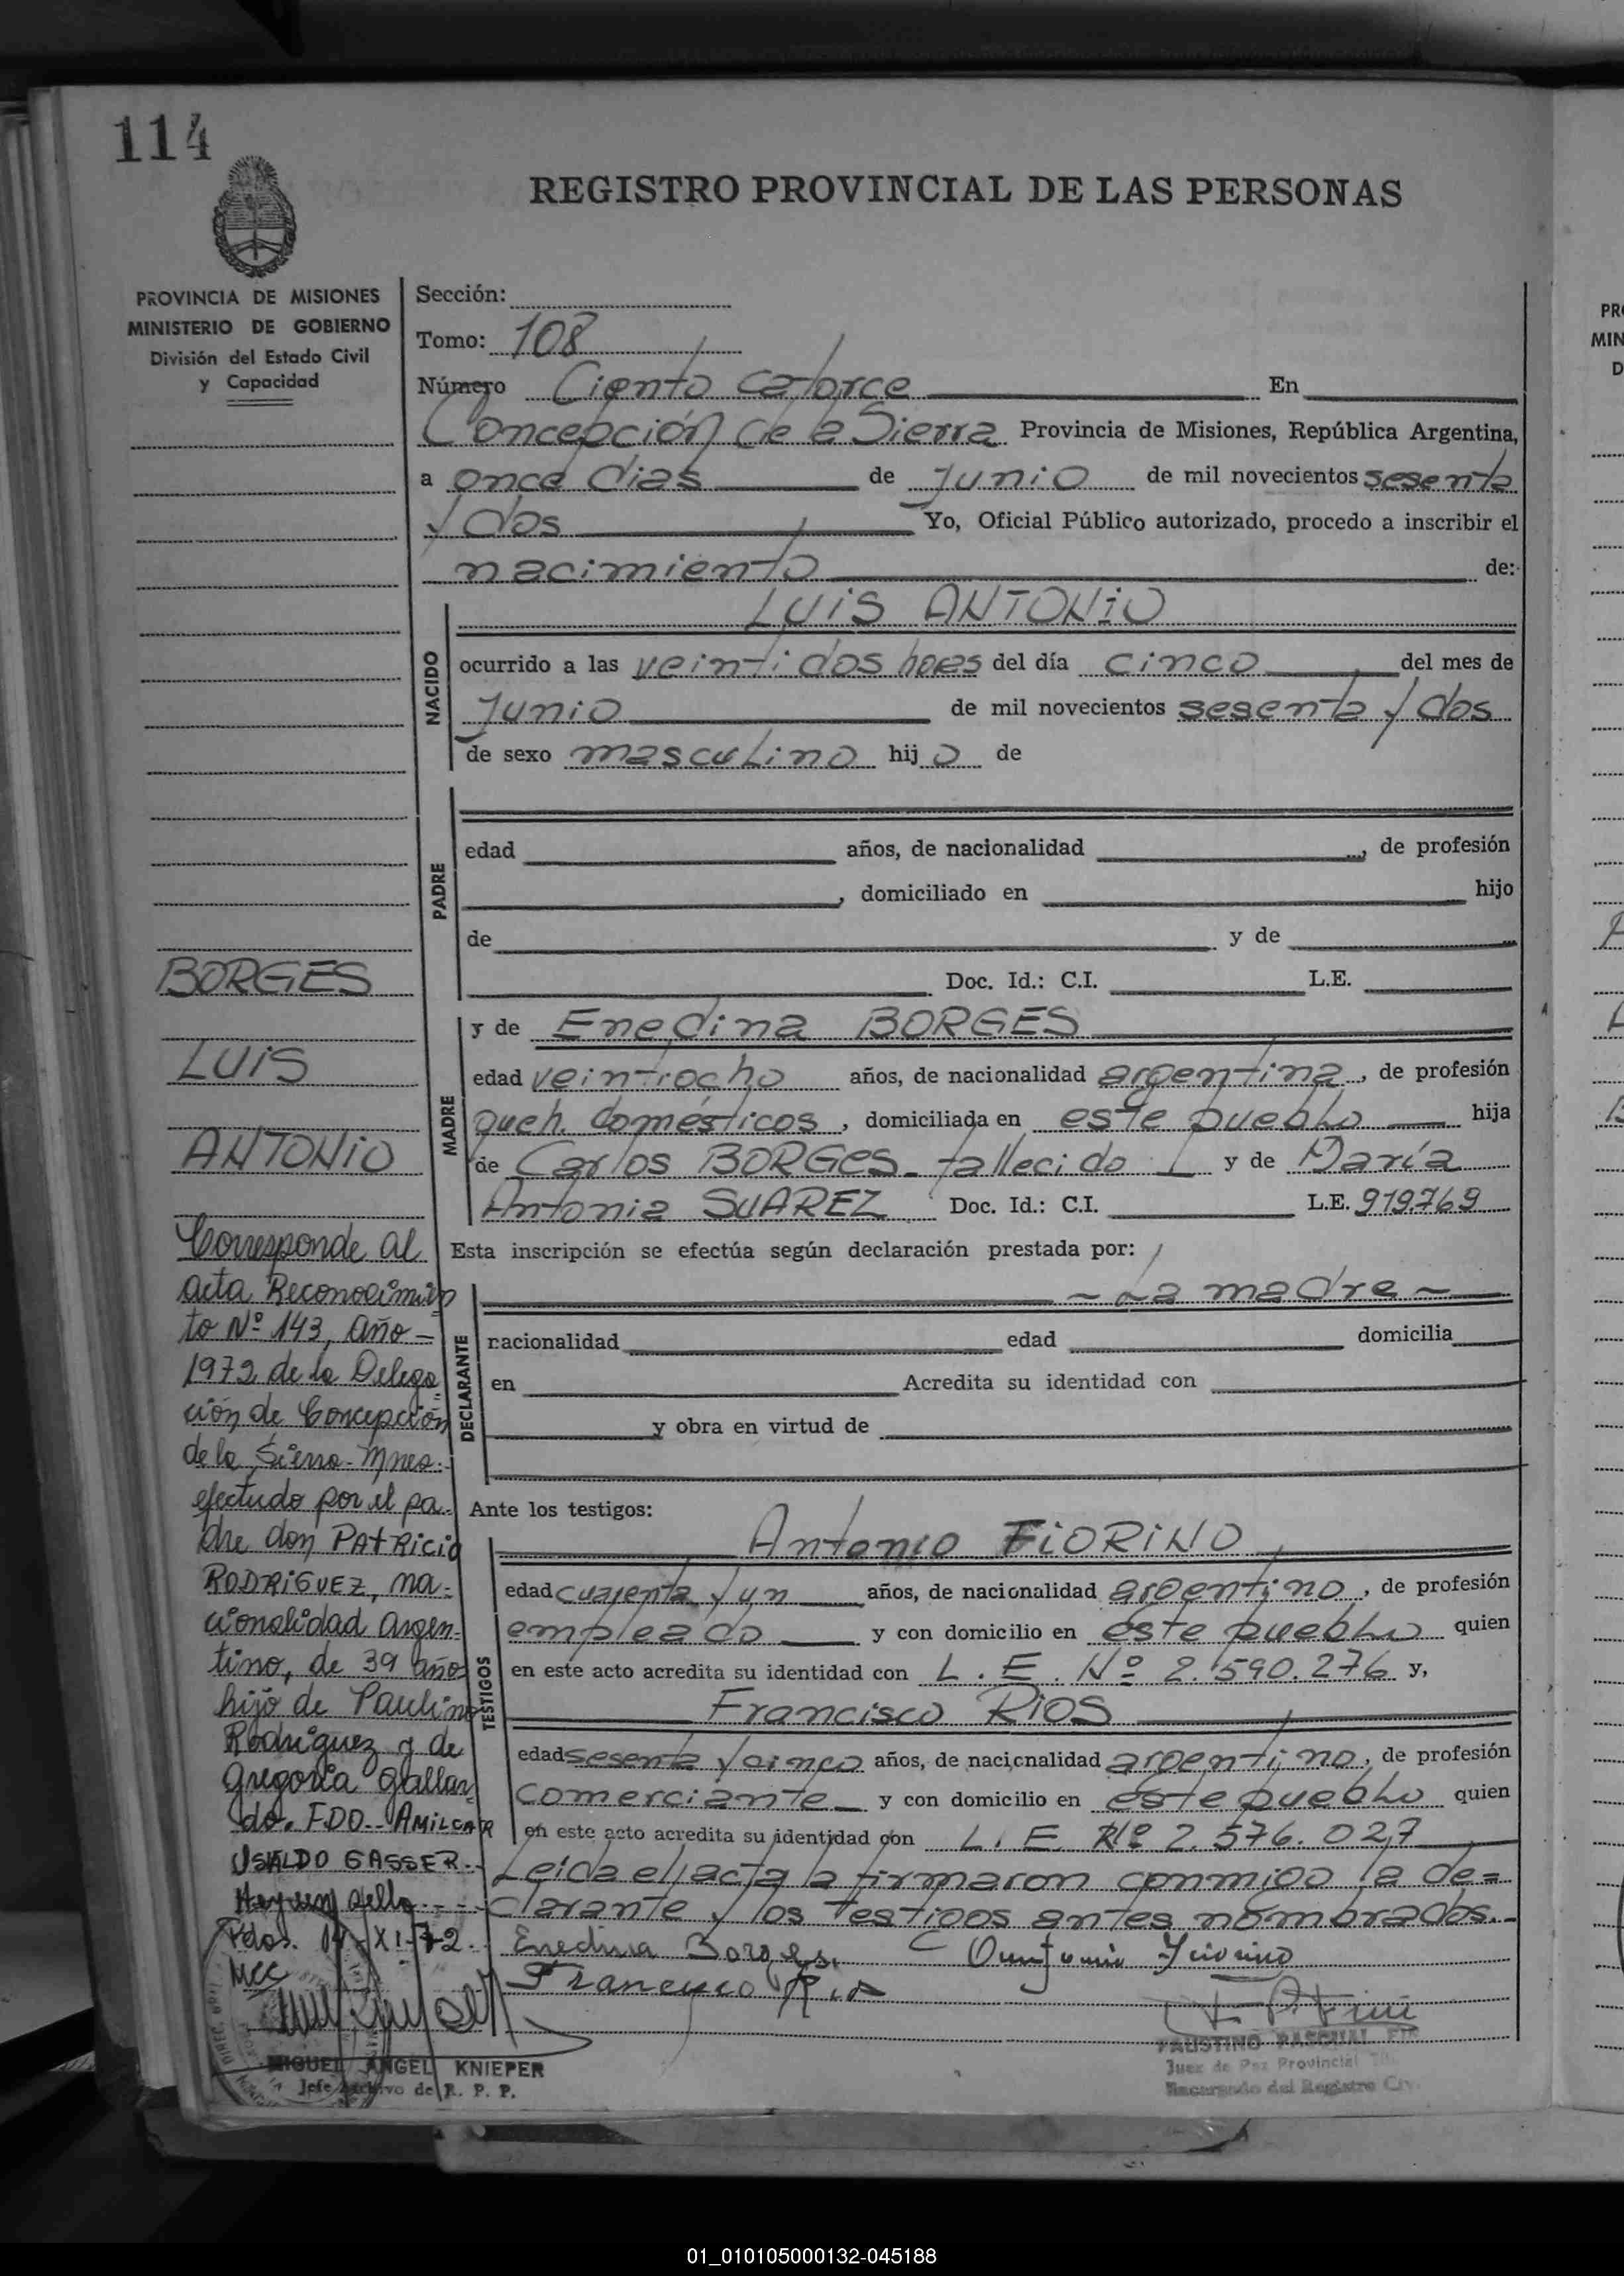 114
REGISTRO PROVINCIAL DE LAS PERSONAS
PROVINCIA DE MISIONES
MINISTERIO DE GOBIERNO
División del Estado Civil
y Capacidad
Sección:
Tomo: 108
Número Ciento catorce En
Concepción de la Sierra Provincia de Misiones, República Argentina,
a once dias de junio de mil novecientos sesenta
y dos Yo, Oficial Público autorizado, procedo a inscribir el
nacimiento de:
NACIDO
LUIS ANTONIO
ocurrido a las veintidos horas del día cinco del mes de
junio de mil novecientos sesenta y dos
de sexo masculino hijo de
PADRE
edad años, de nacionalidad , de profesión
, domiciliado en hijo
de y de
Doc. Id.: C.I. L.E.
MADRE
y de Enedina BORGES
edad veintiocho años, de nacionalidad argentina, de profesión
queh. domésticos, domiciliada en este pueblo hija
de Carlos BORGES - fallecido y de María
Antonia SUAREZ Doc. Id.: C.I. L.E. 919.769
Esta inscripción se efectúa según declaración prestada por:
DECLARANTE
- La madre -
nacionalidad edad domicilia
en Acredita su identidad con
y obra en virtud de
Ante los testigos:
TESTIGOS
Antonio FIORINO
edad cuarenta y un años, de nacionalidad argentino, de profesión
empleado y con domicilio en este pueblo quien
en este acto acredita su identidad con L. E. Nº 2.590.276 y,
Francisco RIOS
edad sesenta y cinco años, de nacionalidad argentino, de profesión
comerciante y con domicilio en este pueblo quien
en este acto acredita su identidad con L. E. Nº 2.576.027
Leída el acta la firmaron conmigo la de=
clarante y los testigos antes nombrados.-
Enedina Borges.
Francisco
FAUSTINO PASCUAL
Juez de Paz Provincial
Encargado del Registro Civ.
BORGES
LUIS
ANTONIO
Corresponde al
acta Reconocimien
to Nº 143, año -
1972 de la Delega
ción de Concepción
de la Sierra - Mnes.
efectudo por el pa-
dre don PATRICIO
RODRIGUEZ, na-
cionalidad argen-
tino, de 39 años
hijo de Paulino
Rodriguez y de
Gregoria Gallar
do. FDO. AMILCAR
USALDO GASSER.
Hay un sello.
Pdas. XI-72.
MCC
MIGUEL ANGEL KNIEPER
Jefe Archivo de R. P. P.
01_010105000132-045188